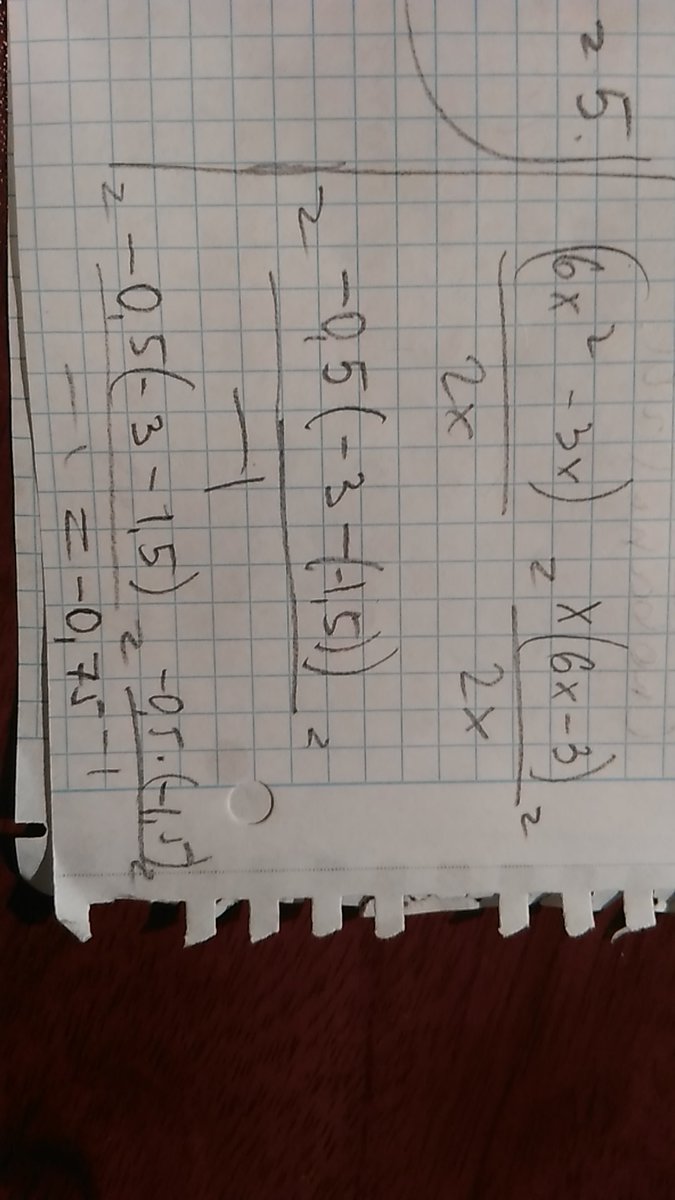 = 5.
(6x² - 3x) / 2x = x(6x - 3) / 2x =
= -0,5(-3 - (-1,5)) / -1 =
= -0,5(-3 - 1,5) / -1 = -0,5·(-1,5) / -1 =
= -0,75